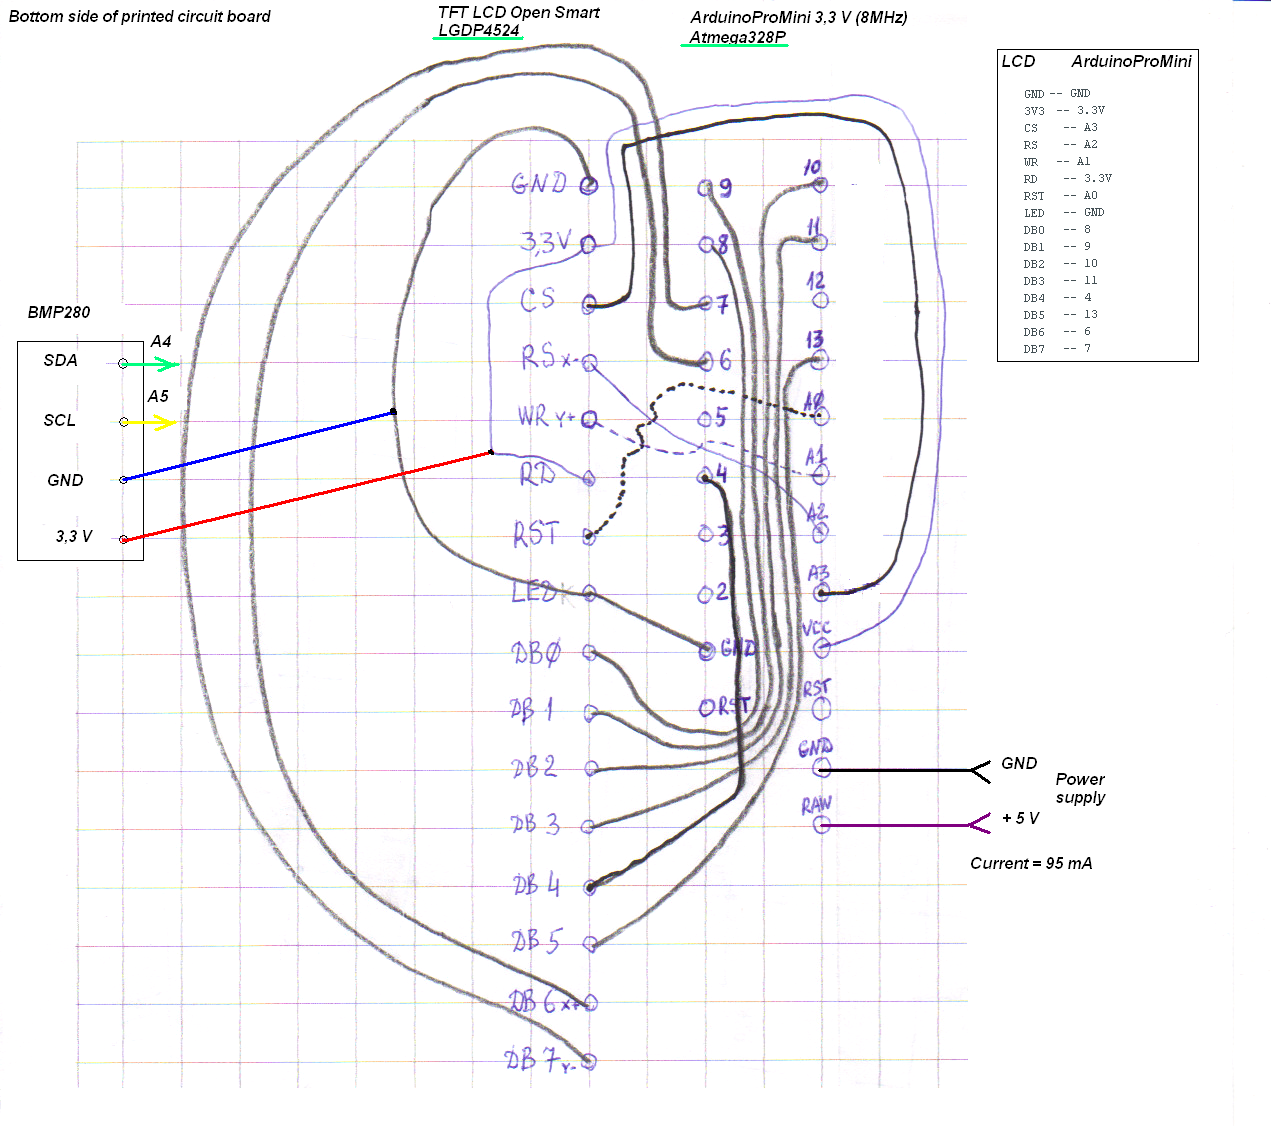 Bottom side of printed circuit board
TFT LCD Open Smart
LGDP4524
ArduinoProMini 3,3 V (8MHz)
Atmega328P
LCD ArduinoProMini
GND -- GND
3V3 -- 3.3V
CS -- A3
RS -- A2
WR -- A1
RD -- 3.3V
RST -- A0
LED -- GND
DB0 -- 8
DB1 -- 9
DB2 -- 10
DB3 -- 11
DB4 -- 4
DB5 -- 13
DB6 -- 6
DB7 -- 7
BMP280
SDA
A4
SCL
A5
GND
3,3 V
GND
3,3V
CS
RS X-
WR Y+
RD
RST
LED K
DB0
DB 1
DB 2
DB 3
DB 4
DB 5
DB 6 X+
DB 7 Y-
9
8
7
6
5
4
3
2
GND
RST
10
11
12
13
A0
A1
A2
A3
VCC
RST
GND
RAW
GND
Power
supply
+ 5 V
Current = 95 mA